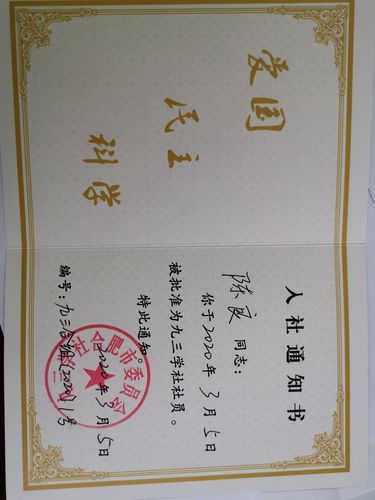 爱国
民主
科学
入社通知书
陈良 同志:
你于2020年3月5日
被批准为九三学社社员。
特此通知。
2020年3月5日
编号:九三合组[2020]1号